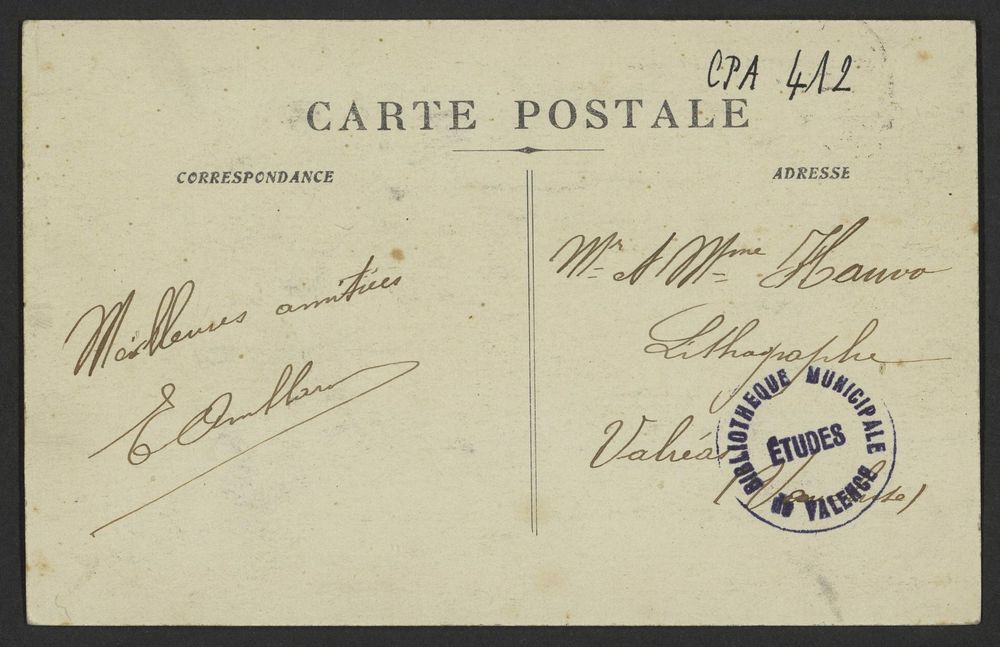 CPA 412
CARTE POSTALE
CORRESPONDANCE
ADRESSE
Meilleures amitiés
E
Mr & Mme Hauvo
Lithographe
Valréas
(Vaucluse)
BIBLIOTHEQUE MUNICIPALE
ÉTUDES
DE VALENCE